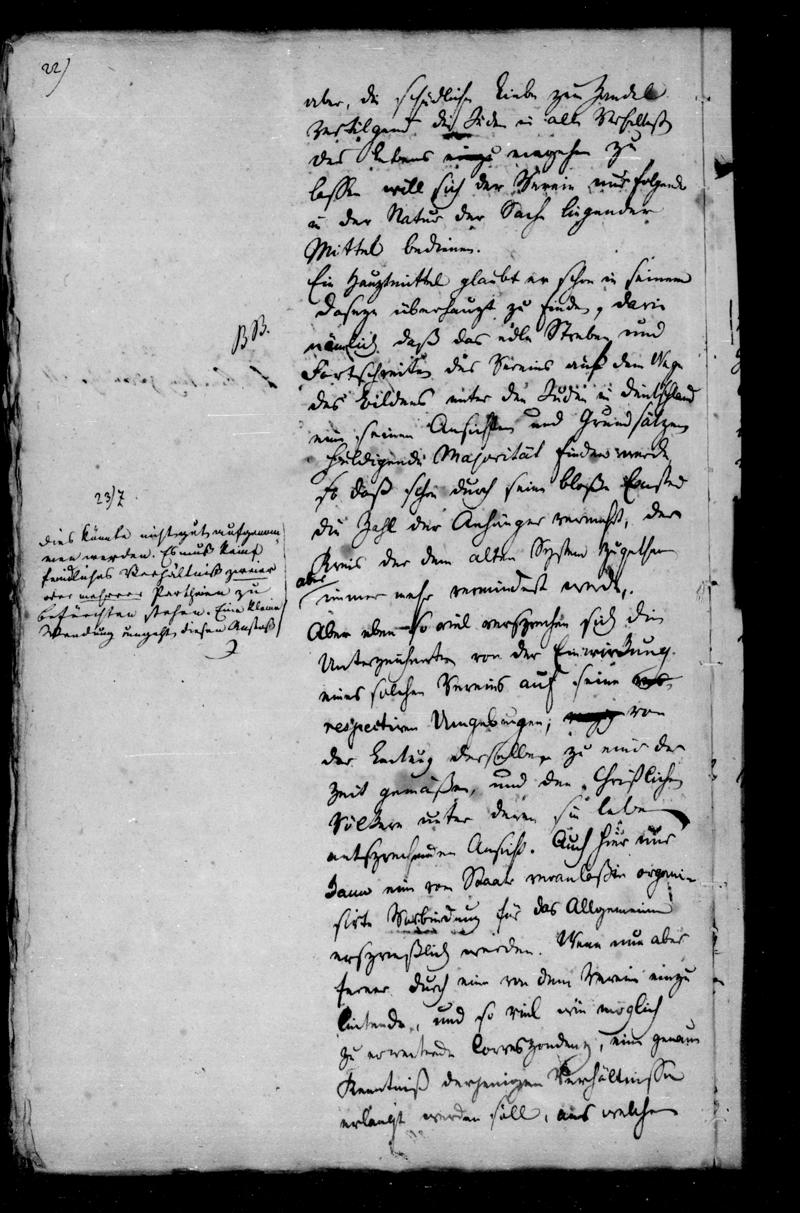 22)
aber, die schädliche Liebe zum Handel
vertilgend die Juden in alle Verhältniße
des Lebens eingehen zu
lassen will sich der Verein nur folgende
in der Natur der Sache liegender
Mittel bedienen.
Ein Hauptmittel glaubt er schon in seinem
Daseyn überhaupt zu finden, darin
nämlich daß das edle Streben und
Fortschreiten des Vereins auf dem Wege
des Bildens unter den Juden in Deutschland
eine seinen Ansichten und Grundsätzen
huldigende Majorität finden werde
so daß schon durch seine bloße Existenz
die Zahl der Anhänger vermehrt, der
Kreis der dem alten System zugethanen
aber
immer mehr vermindert werde.
Aber eben so viel versprechen sich die
Unterzeichneten von der Einwirkung
eines solchen Vereins auf seine
respectiven Umgebungen; von
der Leitung derselben zu einer der
Zeit gemäßen, und den Christlichen
Völkern unter denen sie leben
entsprechenden Ansicht. Auch hier nur
kann eine vom Staate veranlaßte organi-
sirte Verbindung für das Allgemeine
ersprießlich werden. Wenn nun aber
ferner durch eine von dem Verein einzu
leitende, und so viel wie möglich
zu erweiternde Correspondenz, eine genaue
Kenntniß derjenigen Verhältnisse
erlangt werden soll, aus welchen
BB.
23/7
Dies könnte nicht gut aufgenom-
men werden. Es muß kein
feindliches Verhältniß zweier
oder mehrerer Partheien zu
befürchten stehen. Eine kleine
Wendung umgeht diesen Anstoß